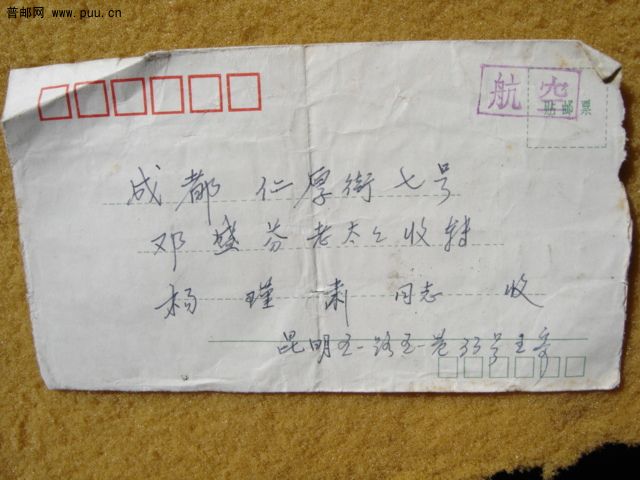 普邮网 www.puu.cn
航空
贴邮票
成都 仁厚街七号
邓盛芬老太太收转
杨瑾肃 同志 收
昆明五一路五一巷33号王